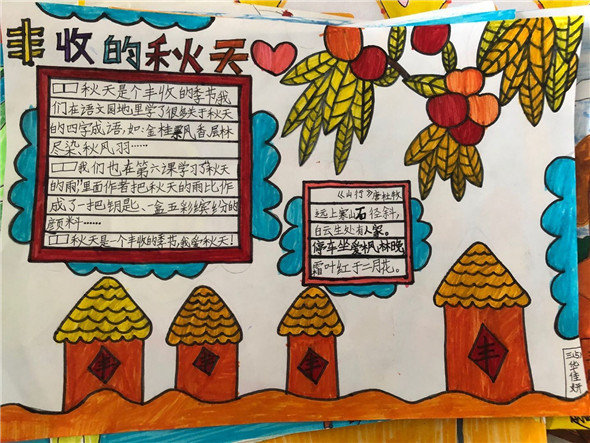 丰收的秋天
秋天是个丰收的季节,我
们在语文园地里学了很多关于秋天
的四字成语,如:金桂飘香层林
尽染秋风……
我们也在第六课学习了"秋天
的雨"里面作者把秋天的雨比作
成了一把钥匙、一盒五彩缤纷的
颜料……
秋天是一个丰收的季节,我爱秋天!
《山行》唐杜牧
远上寒山石径斜,
白云生处有人家。
停车坐爱枫林晚
霜叶红于二月花。
丰
丰
丰
丰
华佳妍